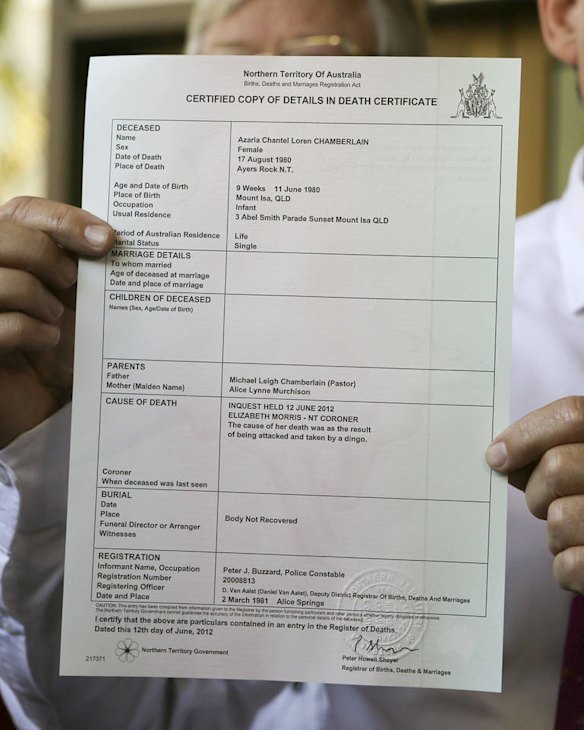 Northern Territory Of Australia
Births, Deaths and Marriages Registration Act
CERTIFIED COPY OF DETAILS IN DEATH CERTIFICATE
DECEASED
Name Azaria Chantel Loren CHAMBERLAIN
Sex Female
Date of Death 17 August 1980
Place of Death Ayers Rock N.T.
Age and Date of Birth 9 Weeks 11 June 1980
Place of Birth Mount Isa, QLD
Occupation Infant
Usual Residence 3 Abel Smith Parade Sunset Mount Isa QLD
Period of Australian Residence Life
Marital Status Single
MARRIAGE DETAILS
To whom married
Age of deceased at marriage
Date and place of marriage
CHILDREN OF DECEASED
Names (Sex, Age/Date of Birth)
PARENTS
Father Michael Leigh Chamberlain (Pastor)
Mother (Maiden Name) Alice Lynne Murchison
CAUSE OF DEATH INQUEST HELD 12 JUNE 2012
ELIZABETH MORRIS - NT CORONER
The cause of her death was as the result
of being attacked and taken by a dingo.
Coroner
When deceased was last seen
BURIAL
Date
Place Body Not Recovered
Funeral Director or Arranger
Witnesses
REGISTRATION
Informant Name, Occupation Peter J. Buzzard, Police Constable
Registration Number 20008813
Registering Officer D. Van Aalst (Daniel Van Aalst), Deputy District Registrar Of Births, Deaths and Marriages
Date and Place 2 March 1981 Alice Springs
CAUTION: This entry has been compiled from information given to the Registrar by the person furnishing particulars and other persons legally obligated or otherwise.
The Northern Territory Government cannot guarantee the accuracy of the information in relation to the personal details of the deceased.
I certify that the above are particulars contained in an entry in the Register of Deaths.
Dated this 12th day of June, 2012
Northern Territory Government
217371
Peter Howell Shoyer
Registrar of Births, Deaths & Marriages